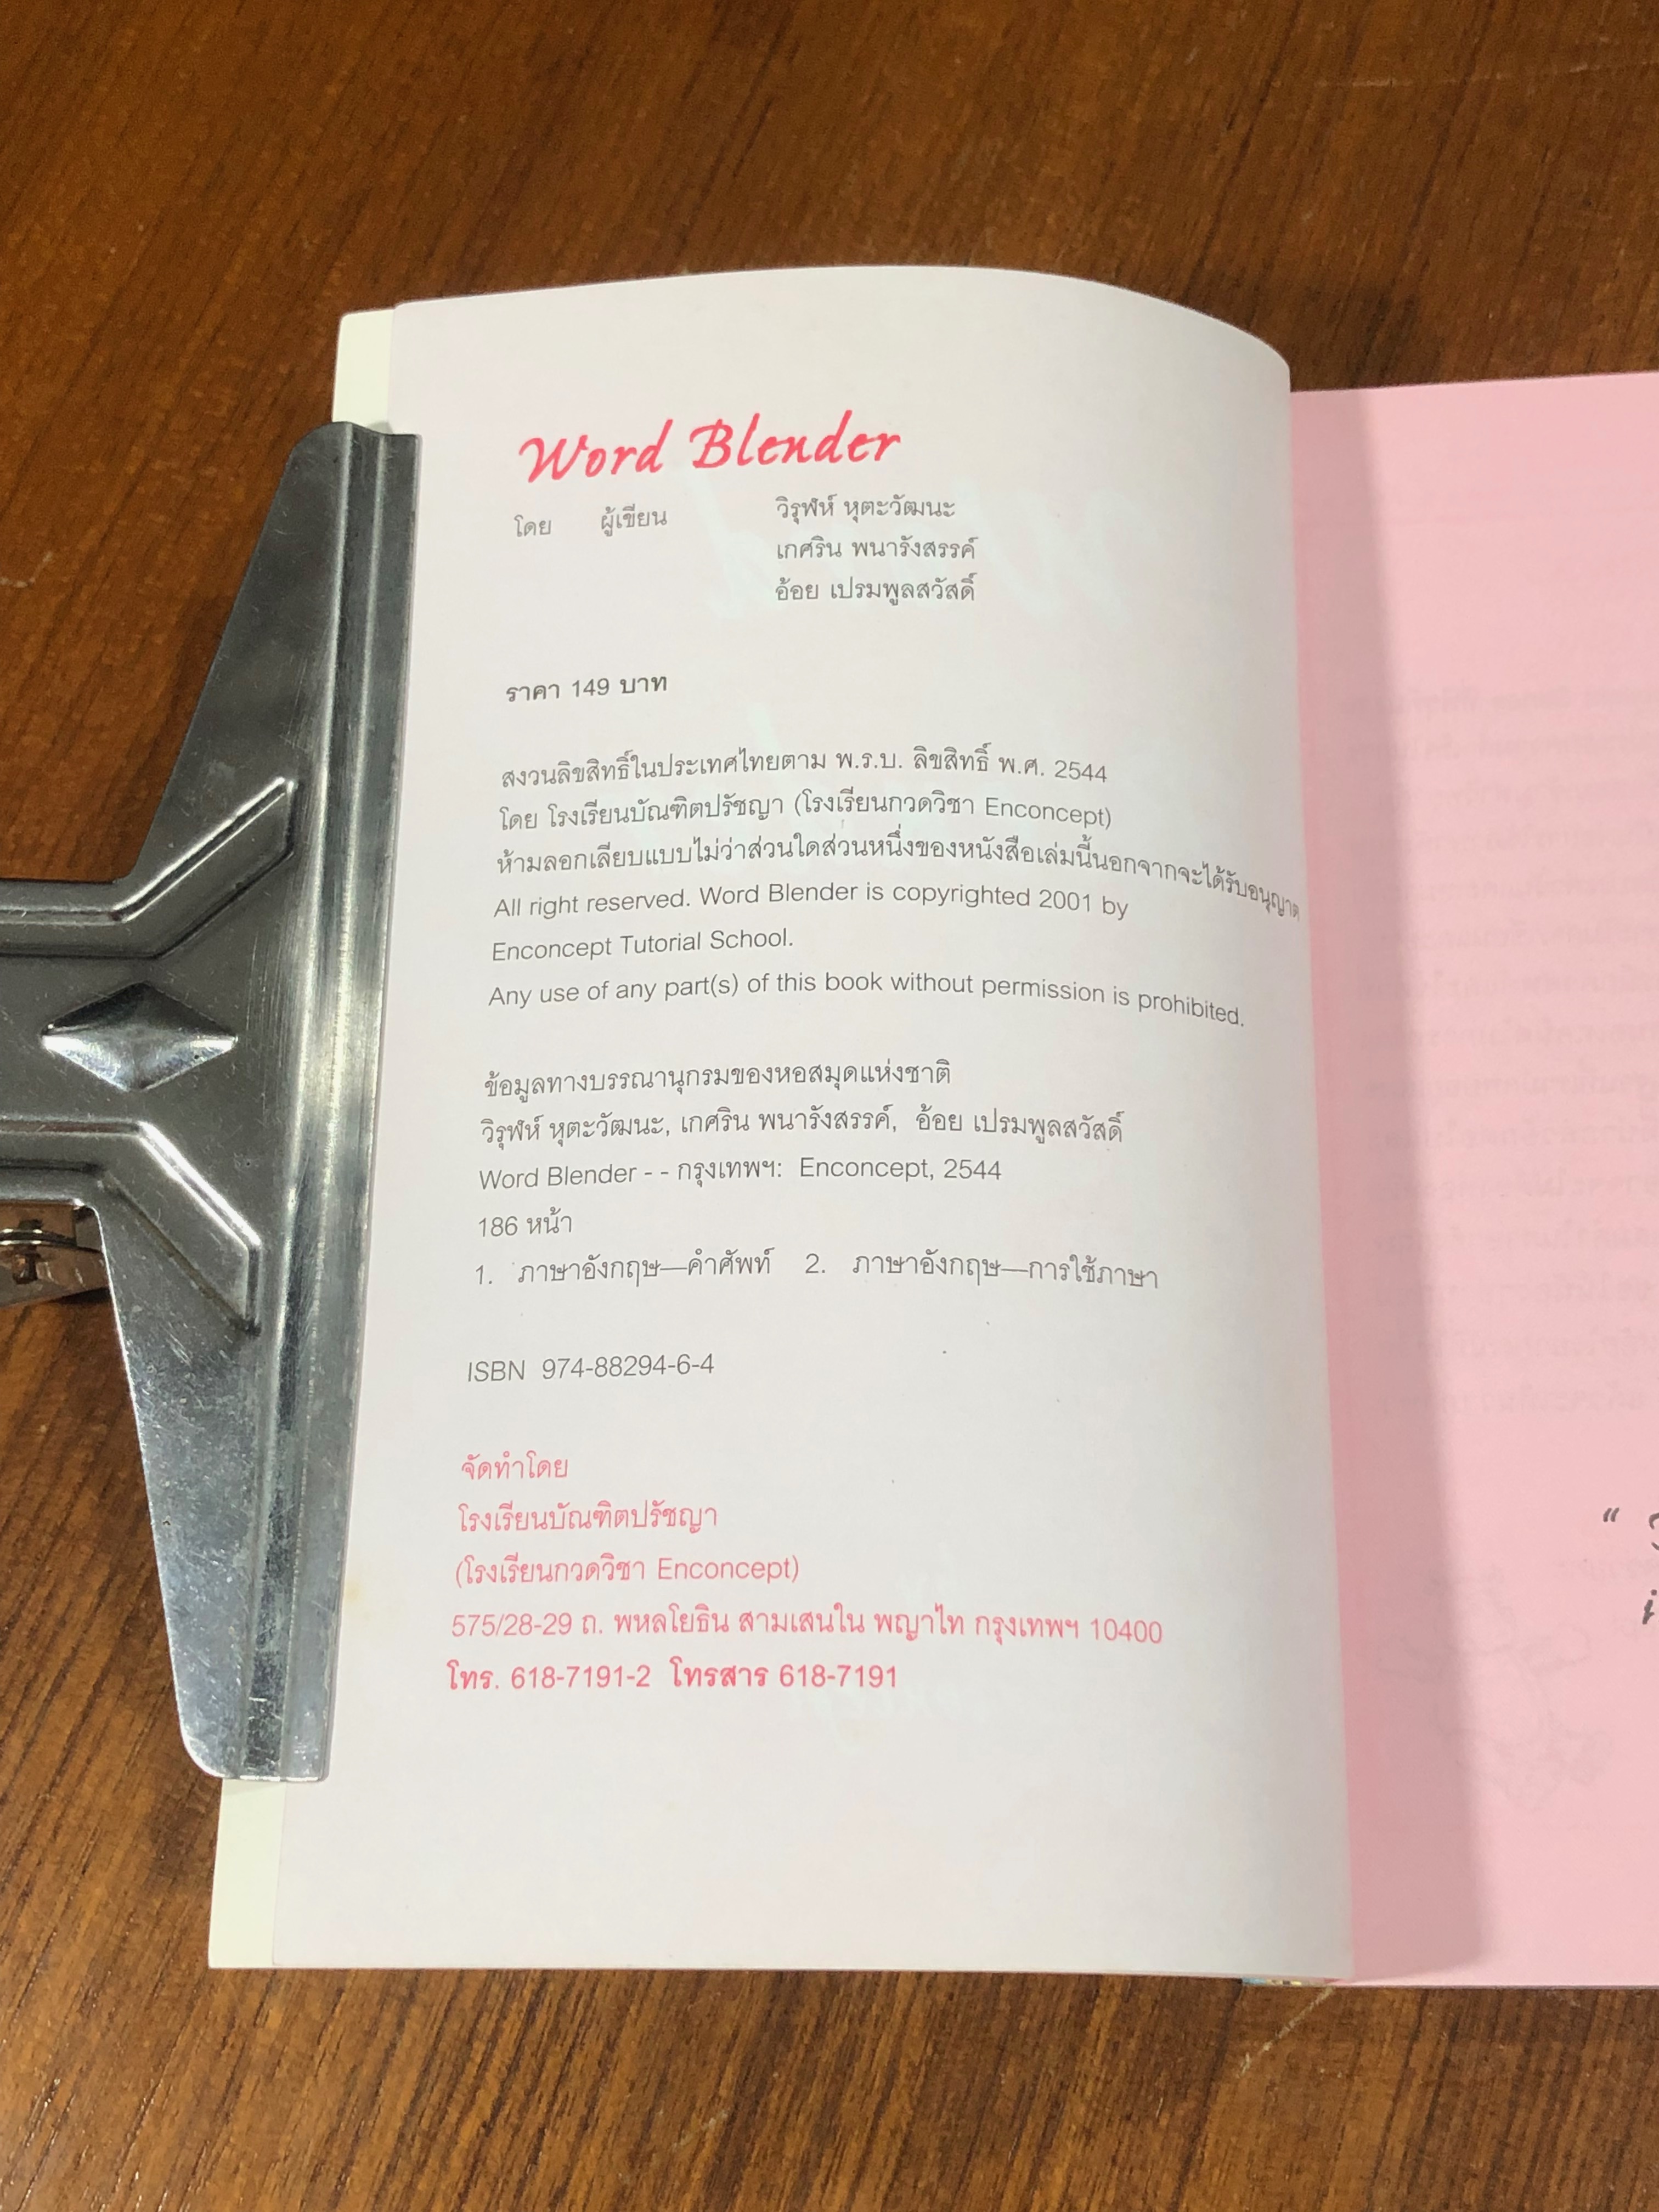 Word Blender
โดย ผู้เขียน วิรุฬห์ หุตะวัฒนะ
เกศริน พนารังสรรค์
อ้อย เปรมพูลสวัสดิ์
ราคา 149 บาท
สงวนลิขสิทธิ์ในประเทศไทยตาม พ.ร.บ. ลิขสิทธิ์ พ.ศ. 2544
โดย โรงเรียนบัณฑิตปรัชญา (โรงเรียนกวดวิชา Enconcept)
ห้ามลอกเลียบแบบไม่ว่าส่วนใดส่วนหนึ่งของหนังสือเล่มนี้นอกจากจะได้รับอนุญาต
All right reserved. Word Blender is copyrighted 2001 by
Enconcept Tutorial School.
Any use of any part(s) of this book without permission is prohibited.
ข้อมูลทางบรรณานุกรมของหอสมุดแห่งชาติ
วิรุฬห์ หุตะวัฒนะ, เกศริน พนารังสรรค์, อ้อย เปรมพูลสวัสดิ์
Word Blender - - กรุงเทพฯ: Enconcept, 2544
186 หน้า
1. ภาษาอังกฤษ—คำศัพท์ 2. ภาษาอังกฤษ—การใช้ภาษา
ISBN 974-88294-6-4
จัดทำโดย
โรงเรียนบัณฑิตปรัชญา
(โรงเรียนกวดวิชา Enconcept)
575/28-29 ถ. พหลโยธิน สามเสนใน พญาไท กรุงเทพฯ 10400
โทร. 618-7191-2 โทรสาร 618-7191